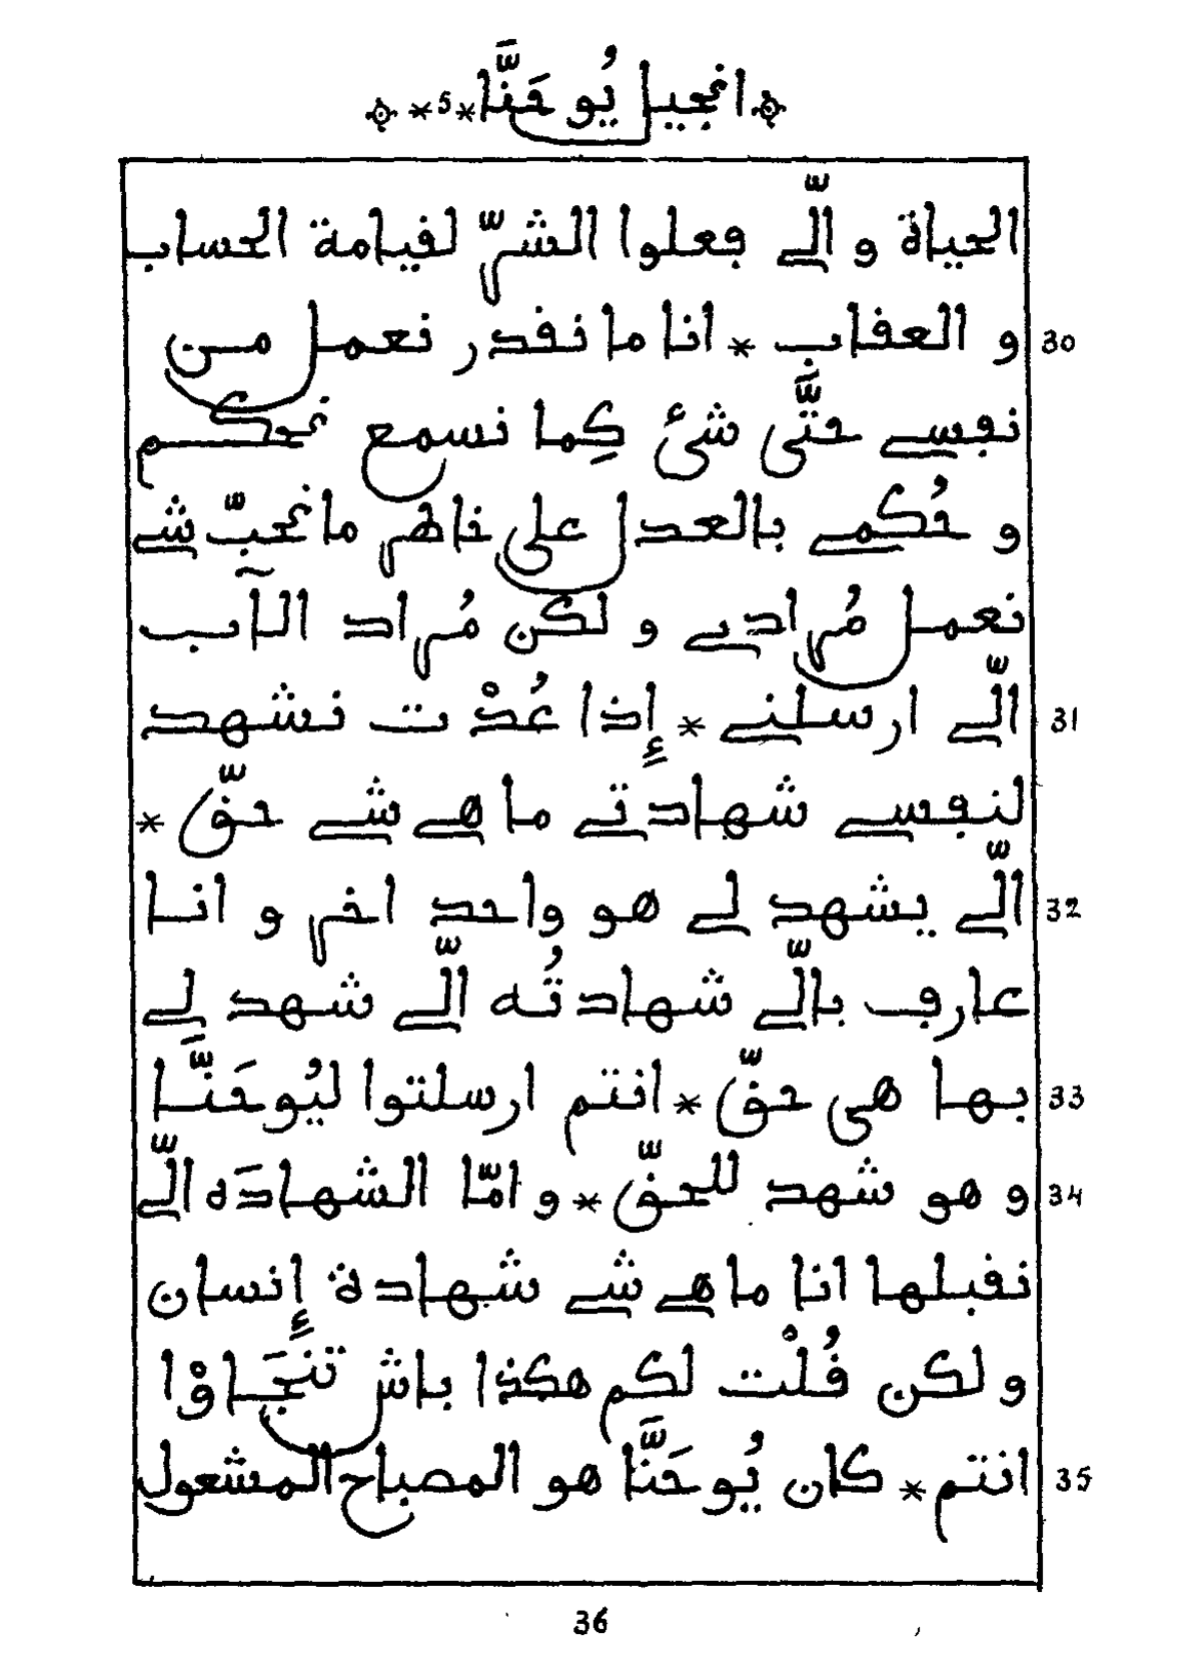 انجيل يُوحَنَّا *5*
الحياة و الّي فعلوا الشرّ لقيامة الحساب
30 و العقاب * انا ما نقدر نعمل من
نفسي حتَّى شئ كِما نسمع نحكم
و حُكمي بالعدل على خاطر ما نحبّ شي
نعمل مُرادي و لكن مُراد الآب
31 الّي ارسلني * إذا عُدْت نشهد
لنفسي شهادتي ما هي شي حقّ *
32 الّي يشهد لي هو واحد اخر و انا
عارف بالّي شهادتُه الّي شهد لي
33 بها هى حقّ * انتم ارسلتوا ليُوحَنَّا
34 و هو شهد للحقّ * و امّا الشهادَه الّي
نقبلها انا ما هي شي شهادة إنسان
و لكن قُلْت لكم هكذا باش تنجَاوْا
35 انتم * كان يُوحَنَّا هو المصباح المشعول
36